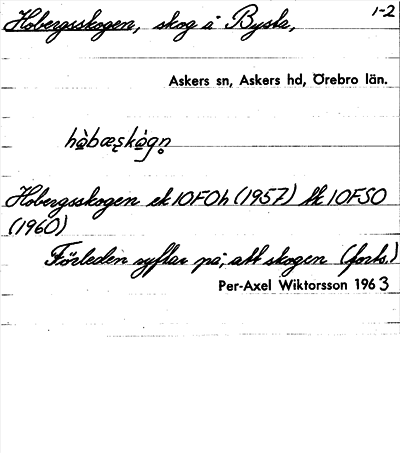 Hobergsskogen, skog å Bysta, 1-2
Askers sn, Askers hd, Örebro län.
hàbæskògn̥
Hobergsskogen ek 10F0h (1957) tk 10FSO
(1960)
Förleden syftar på, att skogen (forts.)
Per-Axel Wiktorsson 1963